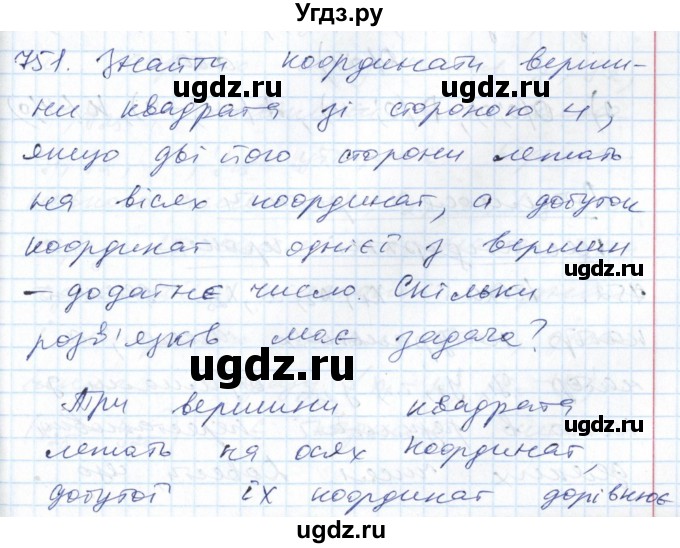 Угдз.ру
751. Знайти координати верши-
ни квадрата зі стороною 4,
якщо дві його сторони лежать
на вісях координат, а добуток
координат однієї з вершин
- додатнє число. Скільки
розв'язків має задача?
Три вершини квадрата
лежать на осях координат,
добуток їх координат дорівнює
ugdz.ru
ugdz.ru
ugdz.ru
ugdz.ru
ugdz.ru
ugdz.ru
ugdz.ru
ugdz.ru
ugdz.ru